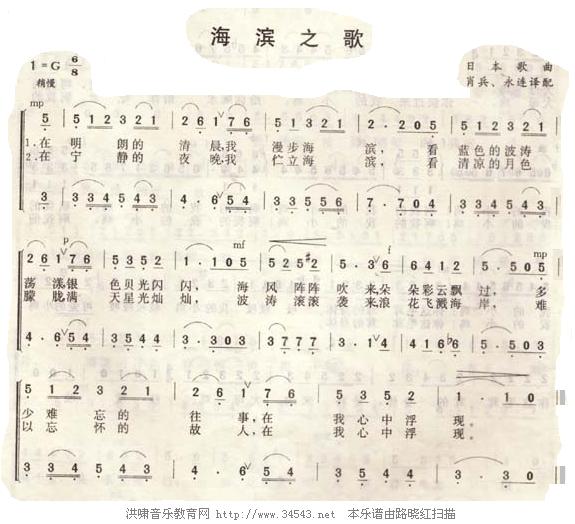 海滨之歌
1=G 6/8
日本歌曲
稍慢
肖兵、永连译配
mp
5 | 5 1 2 3 2 1 | 2 6 1 7 6 | 5 1 3 2 1 | 2 · 2 0 5 | 5 1 2 3 2 1
1.在 明 朗的 清 晨,我 漫步海 滨, 看 蓝色的波涛
2.在 宁 静的 夜 晚,我 伫立海 滨, 看 清凉的月色
3 | 3 3 4 5 4 3 | 4 · 6 5 4 | 3 3 5 5 6 | 7 · 7 0 4 | 3 3 4 5 4 3
p mf f mp
荡漾,银 色贝光闪 闪, 海 风阵阵 吹 来朵 朵彩云飘 过, 多
朦胧,满 天星光灿 灿, 波 涛滚滚 袭 来浪 花飞溅海 岸, 难
5 1 2 3 2 1 | 2 6 1 7 6 | 5 3 5 2 2 | 1 · 1 0
少 难 忘 的 往 事,在 我 心 中 浮 现。
以 忘 怀 的 故 人,在 我 心 中 浮 现。
3 3 4 5 4 3 | 4 · 6 5 4 | 3 5 4 4 | 3 · 3 0
洪啸音乐教育网 http://www.34543.net 本乐谱由路晓红扫描